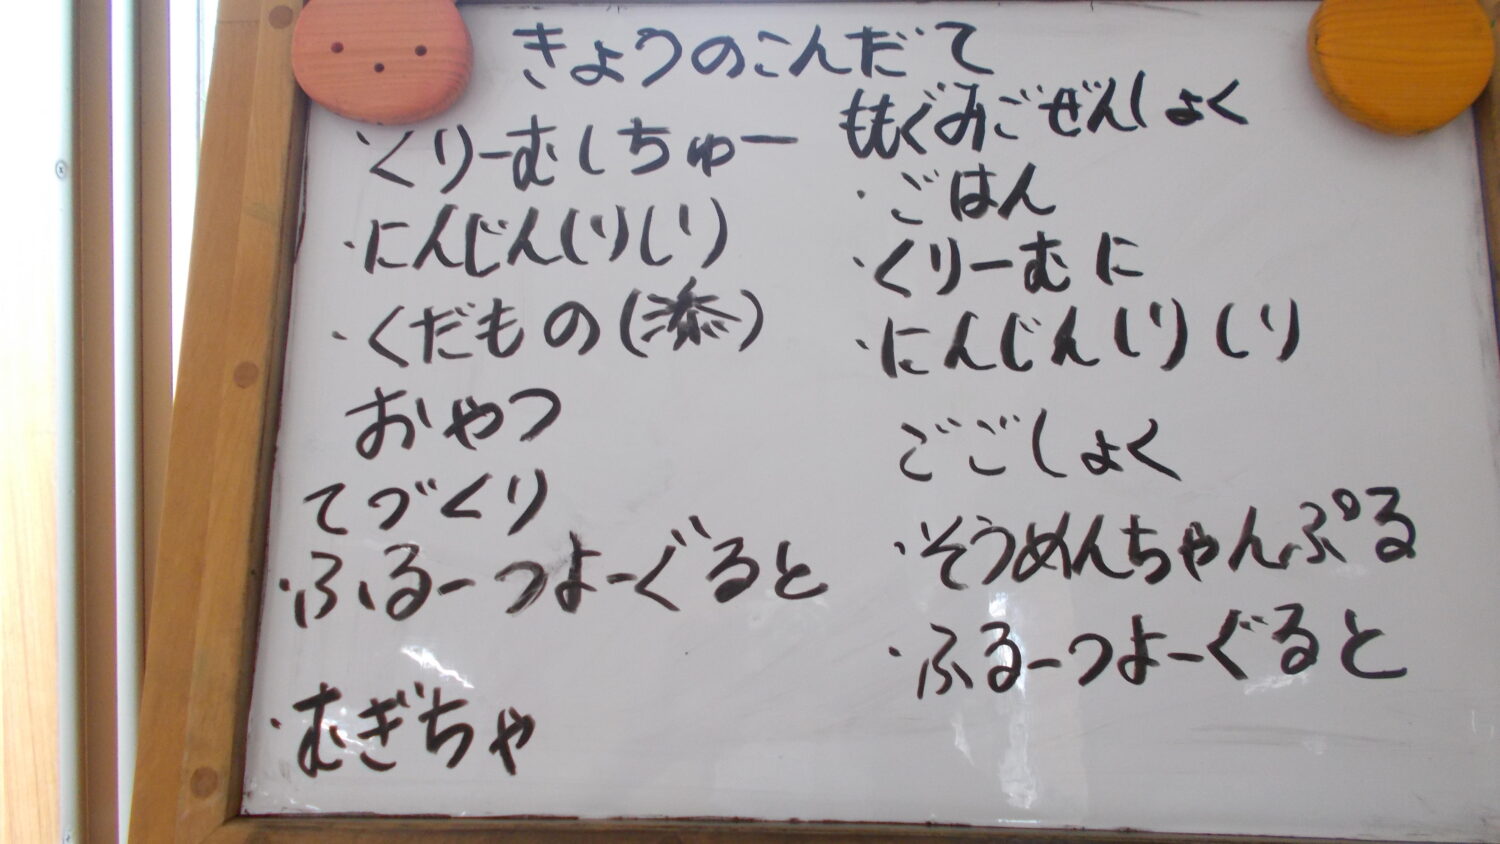 きょうのこんだて
・くりーむしちゅー
・にんじんしりしり
・くだもの()
おやつ
てづくり
・ふるーつよーぐると
・むぎちゃ
ももぐみごぜんしょく
・ごはん
・くりーむに
・にんじんしりしり
ごごしょく
・そうめんちゃんぷる
・ふるーつよーぐると